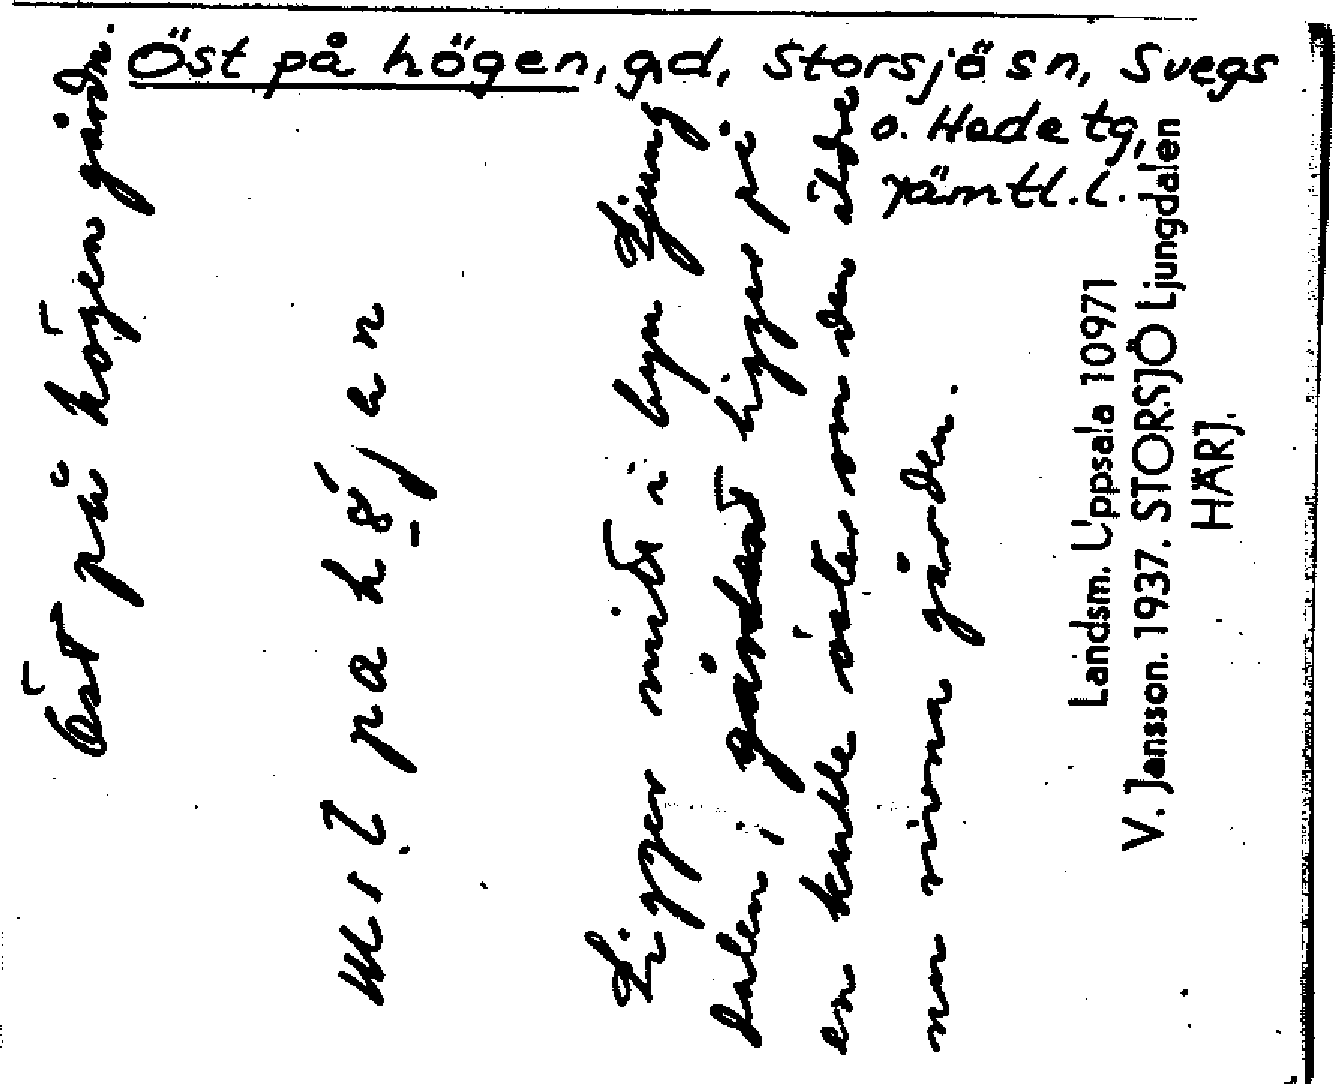 Öst på högen, gd, Storsjö sn, Svegs
o. Hede tg,
Jämtl. l.
Öst på högen gårdn.
Ligger mitt i byn Ljung
dalen; gården ligger på
en kulle öster om den äldre
norrona gården.
Landsm. Uppsala 10971
V. Jansson. 1937. STORSJÖ Ljungdalen
HÄRJ.